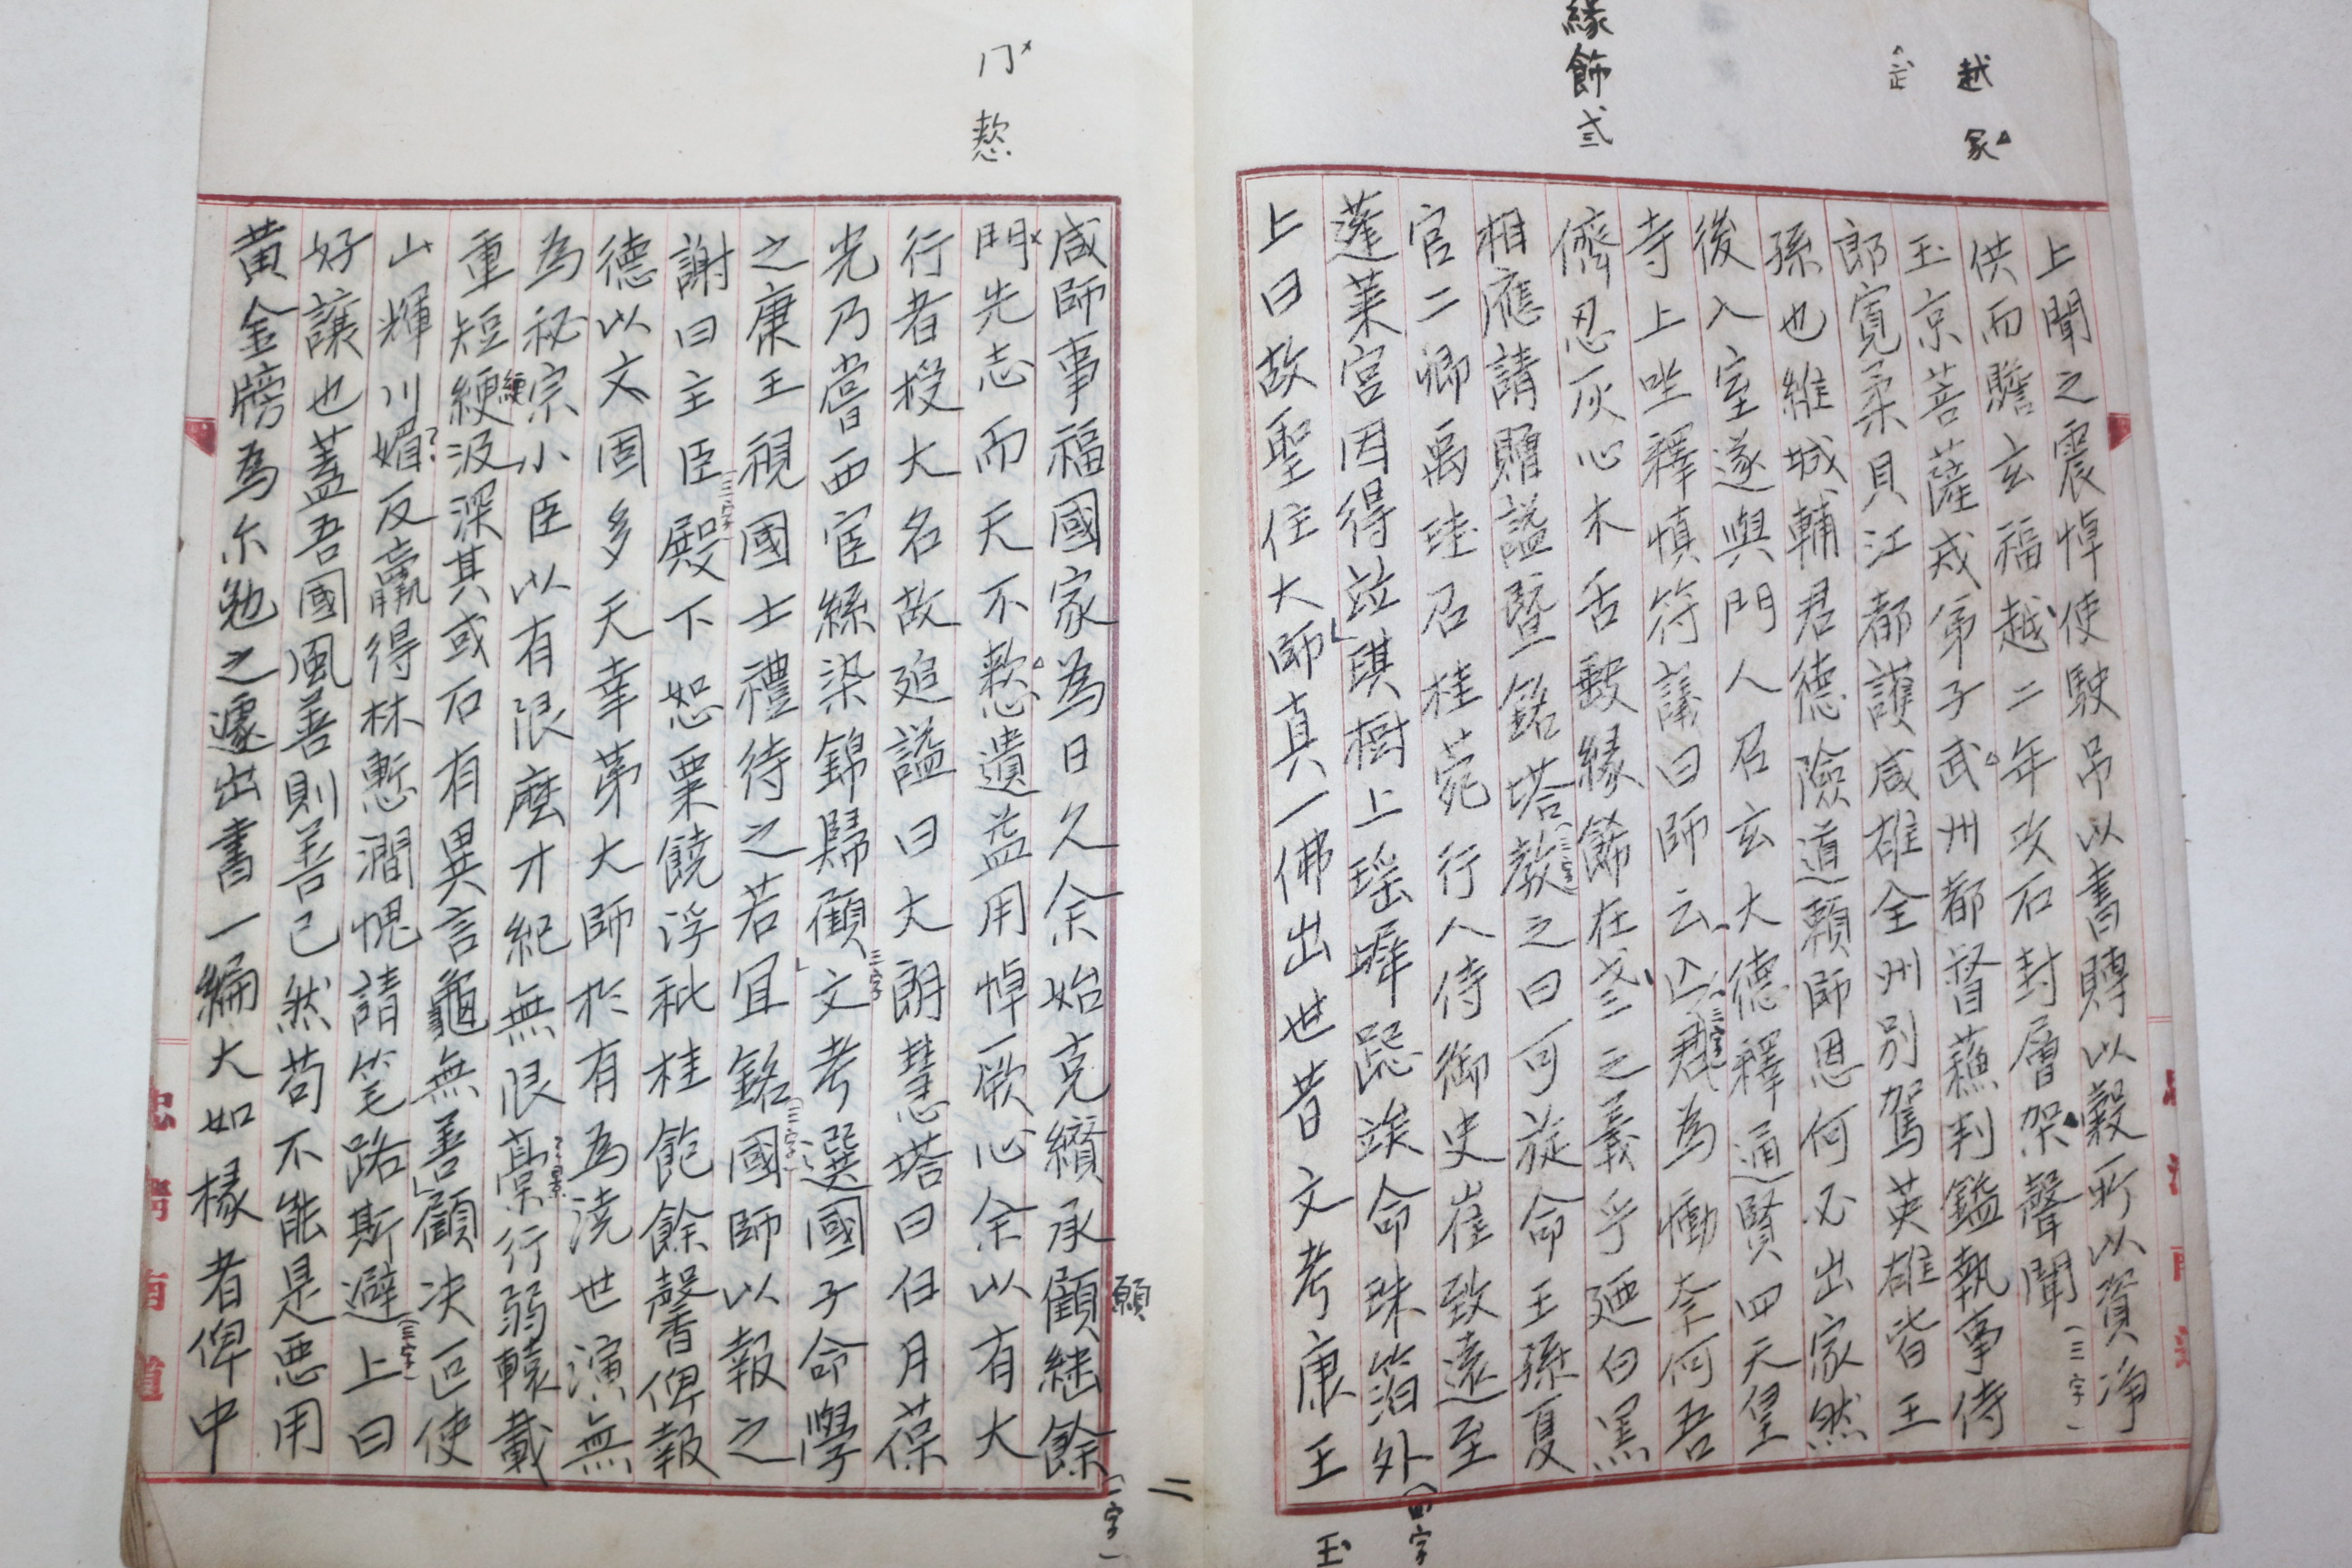 越 家
緣飾弎
上聞之震悼使馹吊以書賻以穀所以資淨
供而贍玄福越二年攻石封層架聲聞(三字)
玉京菩薩戒弟子武州都督蘓判鎰執事侍
郎寬柔貝江都護咸雄全州別駕英雄皆王
孫也維城輔君德險道賴師恩何必出家然
後入室遂與門人召玄大德釋通賢四天皇
寺上坐釋慎符議曰師云亡君為慟奈何吾
儕忍灰心木舌缺緣飾在叄之義乎迺白黑
相應請贈諡曁銘塔(三字)教之曰可旋命王孫夏
官二卿禹珪召桂苑行人侍御史崔致遠至
蓬萊宮因得竝琪樹上瑶墀跽竢命珠箔外(四字)
上曰故聖住大師真一佛出世昔文考康王
玉
門 憗
咸師事福國家為日久余始克纘承顧繼餘(一字)
願
門先志而天不憗遺益用悼厥心余以有大
行者授大名故追諡曰大朗慧塔曰白月葆
光乃嘗西宦絲染錦歸顧(三字)文考選國子命學
之康王視國士禮待之若宜銘(三字)國師以報之
謝曰主臣(三字)殿下恕粟饒浮秕桂飽餘馨俾報
德以文固多天幸苐大師於有為澆世演無
為秘宗小臣以有限麽才紀無限藁行弱轅載
重短綆汲深其或石有異言龜無善顧決叵使
綆
山輝川媚反羸得林慙澗愧請笔路斯避(三字)上曰
好讓也蓋吾國風善則善已然苟不能是悪用
黃金牓為尒勉之遽出書一編大如椽者俾中
二